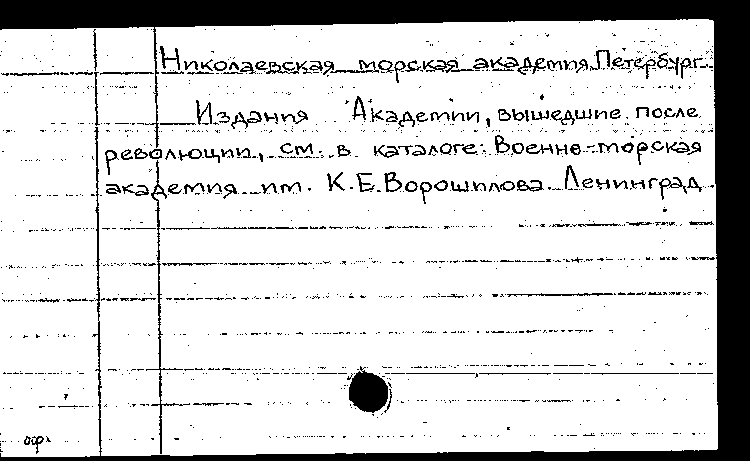 Николаевская морская академия. Петербург.
Издания Академии, вышедшие после
революции, см. в каталоге: Военно-морская
академия им. К.Е.Ворошилова. Ленинград